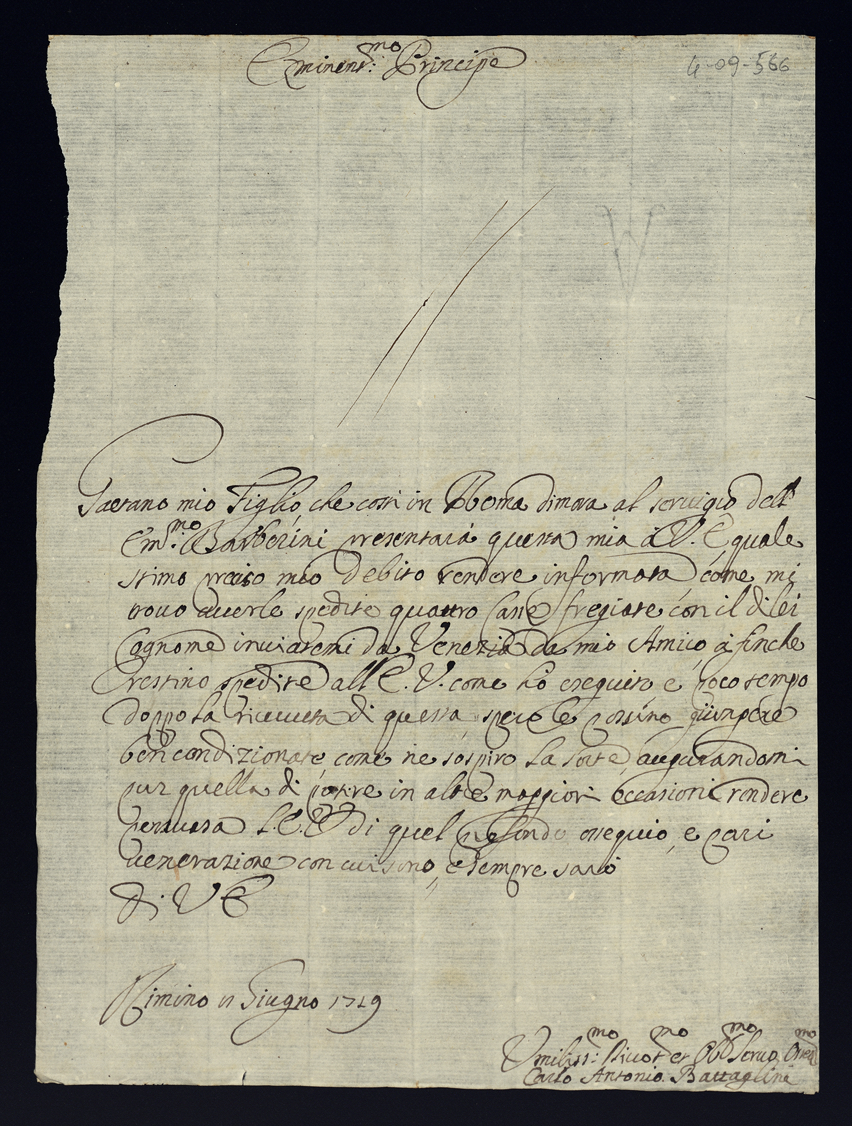 Eminens:mo Principe
4-09-566
Gaetano mio Figlio che costì in Roma dimora al servigio dell'
Em:mo Barberini presentarà questa mia à V. E quale
stimo preciso mio debito rendere informata come mi
trovo averle spedite quattro Casse fregiate con il di lei
Cognome inviatemi da Venezia da mio Amico à finche
restino spedite all'E. V. come hò eseguito e poco tempo
doppo la ricevuta di questa spero le possino giungere
ben condizionate, come ne sospiro la sorte, augurandomi
pur quella di potere in altre maggiori occasioni rendere
persuasa L'E. V di quel profondo ossequio, e pari
venerazione con cui sono, e sempre sarò
Di V E
Rimino Giugno 1719
Umiliss:mo Divot:mo et Obb:mo Servo
Carlo Antonio Battaglini